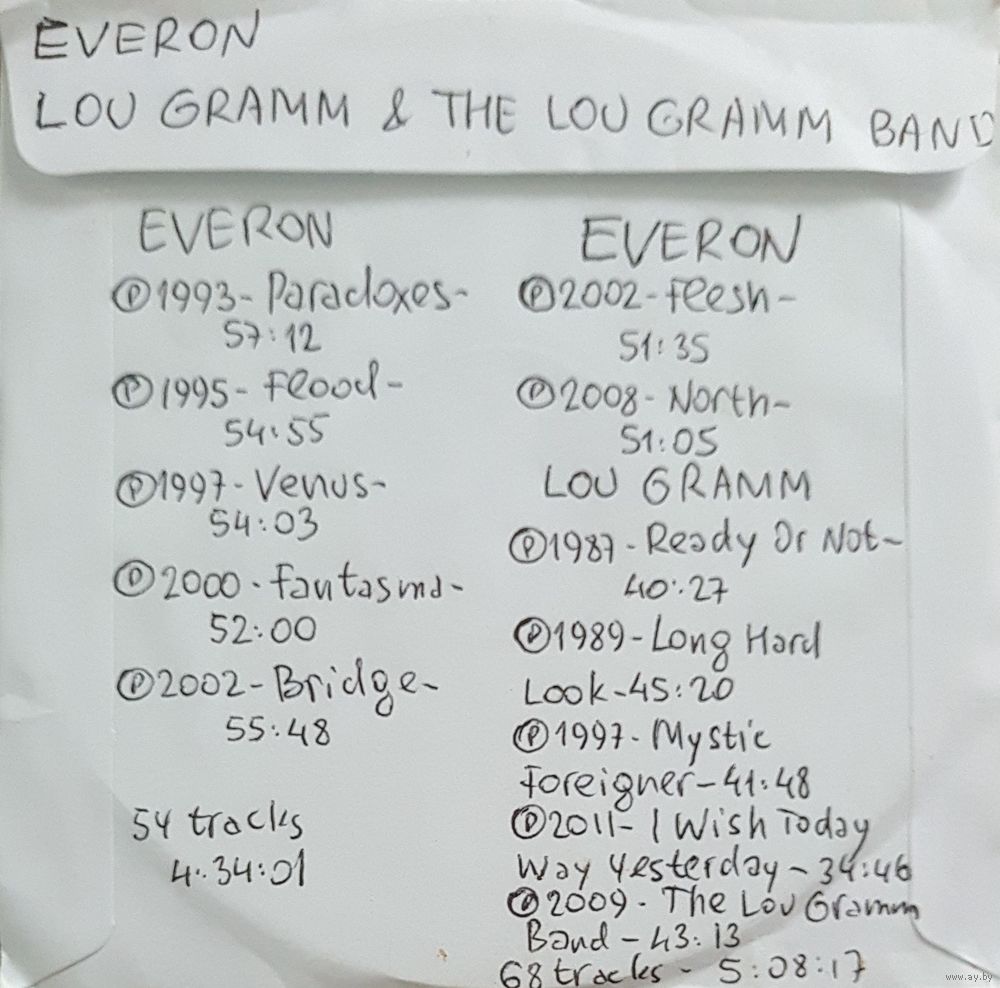 EVERON
LOU GRAMM & THE LOU GRAMM BAND
EVERON
Ⓟ1993-Paradoxes-
57:12
Ⓟ1995-Flood-
54:55
Ⓟ1997-Venus-
54:03
Ⓟ2000-Fantasma-
52:00
Ⓟ2002-Bridge-
55:48
54 tracks
4:34:01
EVERON
Ⓟ2002-Flesh-
51:35
Ⓟ2008-North-
51:05
LOU GRAMM
Ⓟ1987-Ready Or Not-
40:27
Ⓟ1989-Long Hard
Look-45:20
Ⓟ1997-Mystic
Foreigner-41:48
Ⓟ2011-I Wish Today
Way Yesterday-34:46
Ⓟ2009-The Lou Gramm
Band-43:13
68 tracks-5:08:17
www.ay.by